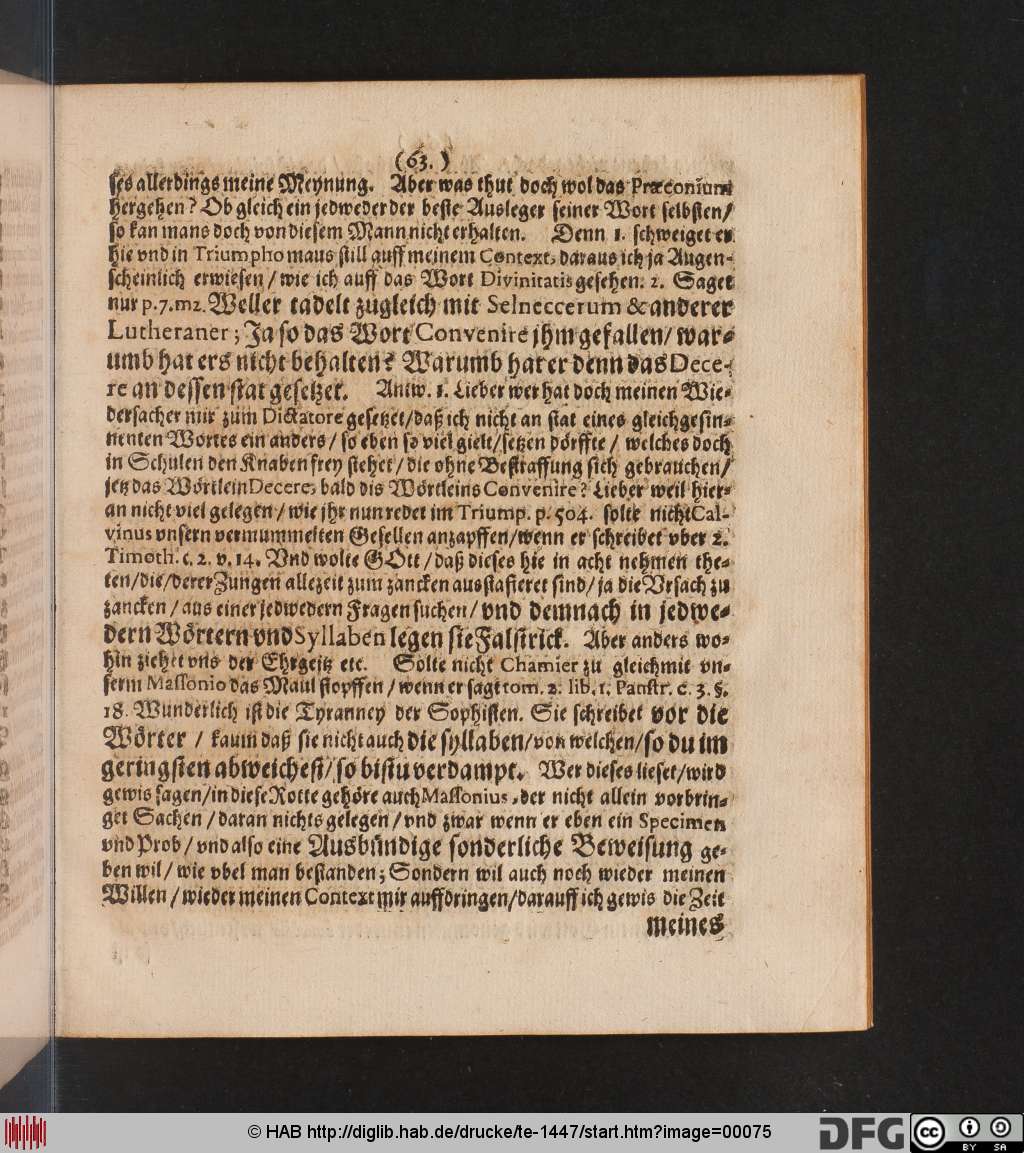 (63.)
ses allerdings meine Meynung. Aber was thut doch wol das Præconium
hergehen? Ob gleich ein jedweder der beste Ausleger seiner Wort selbsten/
so kan mans doch von diesem Mann nicht erhalten. Denn 1. schweiget er
hie vnd in Triumpho maus still auff meinem Context, daraus ich ja Augen-
scheinlich erwiesen/ wie ich auff das Wort Divinitatis gesehen. 2. Saget
nur p. 7. m2. Weller tadelt zugleich mit Selneccerum & anderer
Lutheraner; Ja so das Wort Convenire jhm gefallen/ war-
umb hat ers nicht behalten? Warumb hat er denn das Dece-
re an dessen stat gesetzet. Antw. 1. Lieber wer hat doch meinen Wie-
dersacher mir zum Dictatore gesetzet/ daß ich nicht an stat eines gleichgesin-
nenten Wortes ein anders/ so eben so viel gielt/ setzen dörffte/ welches doch
in Schulen den Knaben frey stehet/ die ohne Bestraffung sich gebrauchen/
jetz das Wörtlein Decere, bald dis Wörtleins Convenire? Lieber weil hier-
an nicht viel gelegen/ wie jhr nun redet im Triump. p. 504. solte nicht Cal-
vinus vnsern vermummelten Gesellen anzapffen/ wenn er schreibet vber 2.
Timoth. c. 2. v. 14. Vnd wolte GOtt/ daß dieses hie in acht nehmen the-
ten/ die/ derer Zungen allezeit zum zancken ausstafieret sind/ ja die Vrsach zu
zancken/ aus einer jedwedern Fragen suchen/ vnd demnach in jedwe-
dern Wörtern vnd Syllaben legen sie Falstrick. Aber anders wo-
hin ziehet vns der Ehrgeitz etc. Solte nicht Chamier zu gleich mit vn-
serm Massonio das Maul stopffen/ wenn er sagt tom. 2. lib. 1. Panstr. c. 3. §.
18. Wunderlich ist die Tyranney der Sophisten. Sie schreibet vor die
Wörter/ kaum daß sie nicht auch die syllaben/ von welchen/ so du im
geringsten abweichest/ so bistu verdampt. Wer dieses lieset/ wird
gewis sagen/ in diese Rotte gehöre auch Massonius, der nicht allein vorbrin-
get Sachen/ daran nichts gelegen/ vnd zwar wenn er eben ein Specimen
vnd Prob/ vnd also eine Ausbündige sonderliche Beweisung ge-
ben wil/ wie vbel man bestanden; Sondern wil auch noch wieder meinen
Willen/ wieder meinen Context mir auffdringen/ darauff ich gewis die Zeit
meines
© HAB http://diglib.hab.de/drucke/te-1447/start.htm?image=00075
DFG
cc
BY SA